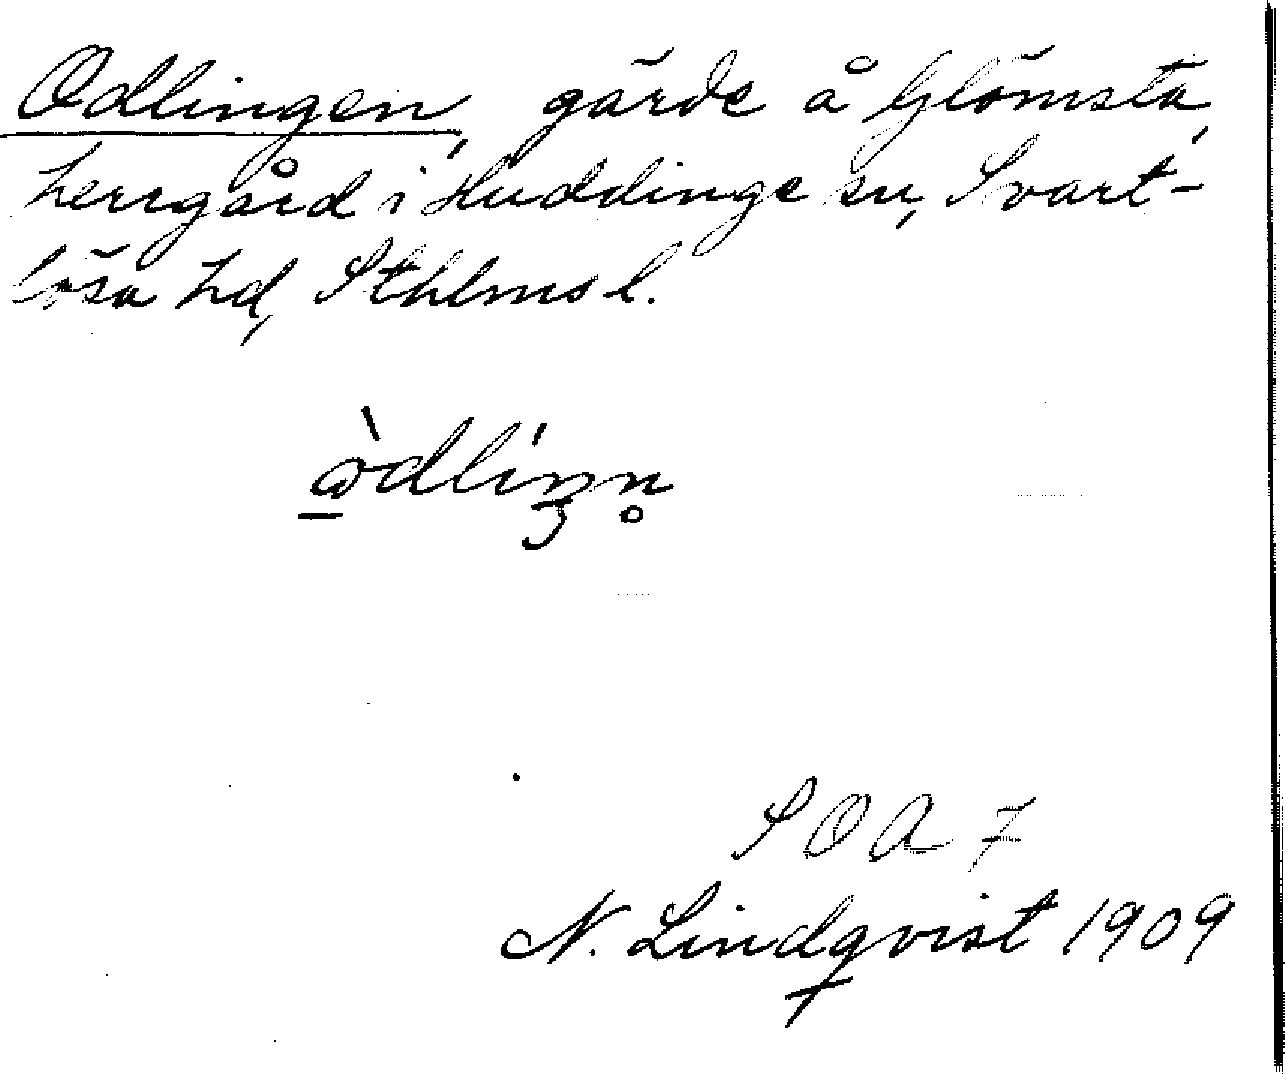 Odlingen, gärde å Glömsta,
herrgård i Huddinge sn, Svart-
lösa hd, Sthlms l.
SOA 7
N. Lindqvist 1909